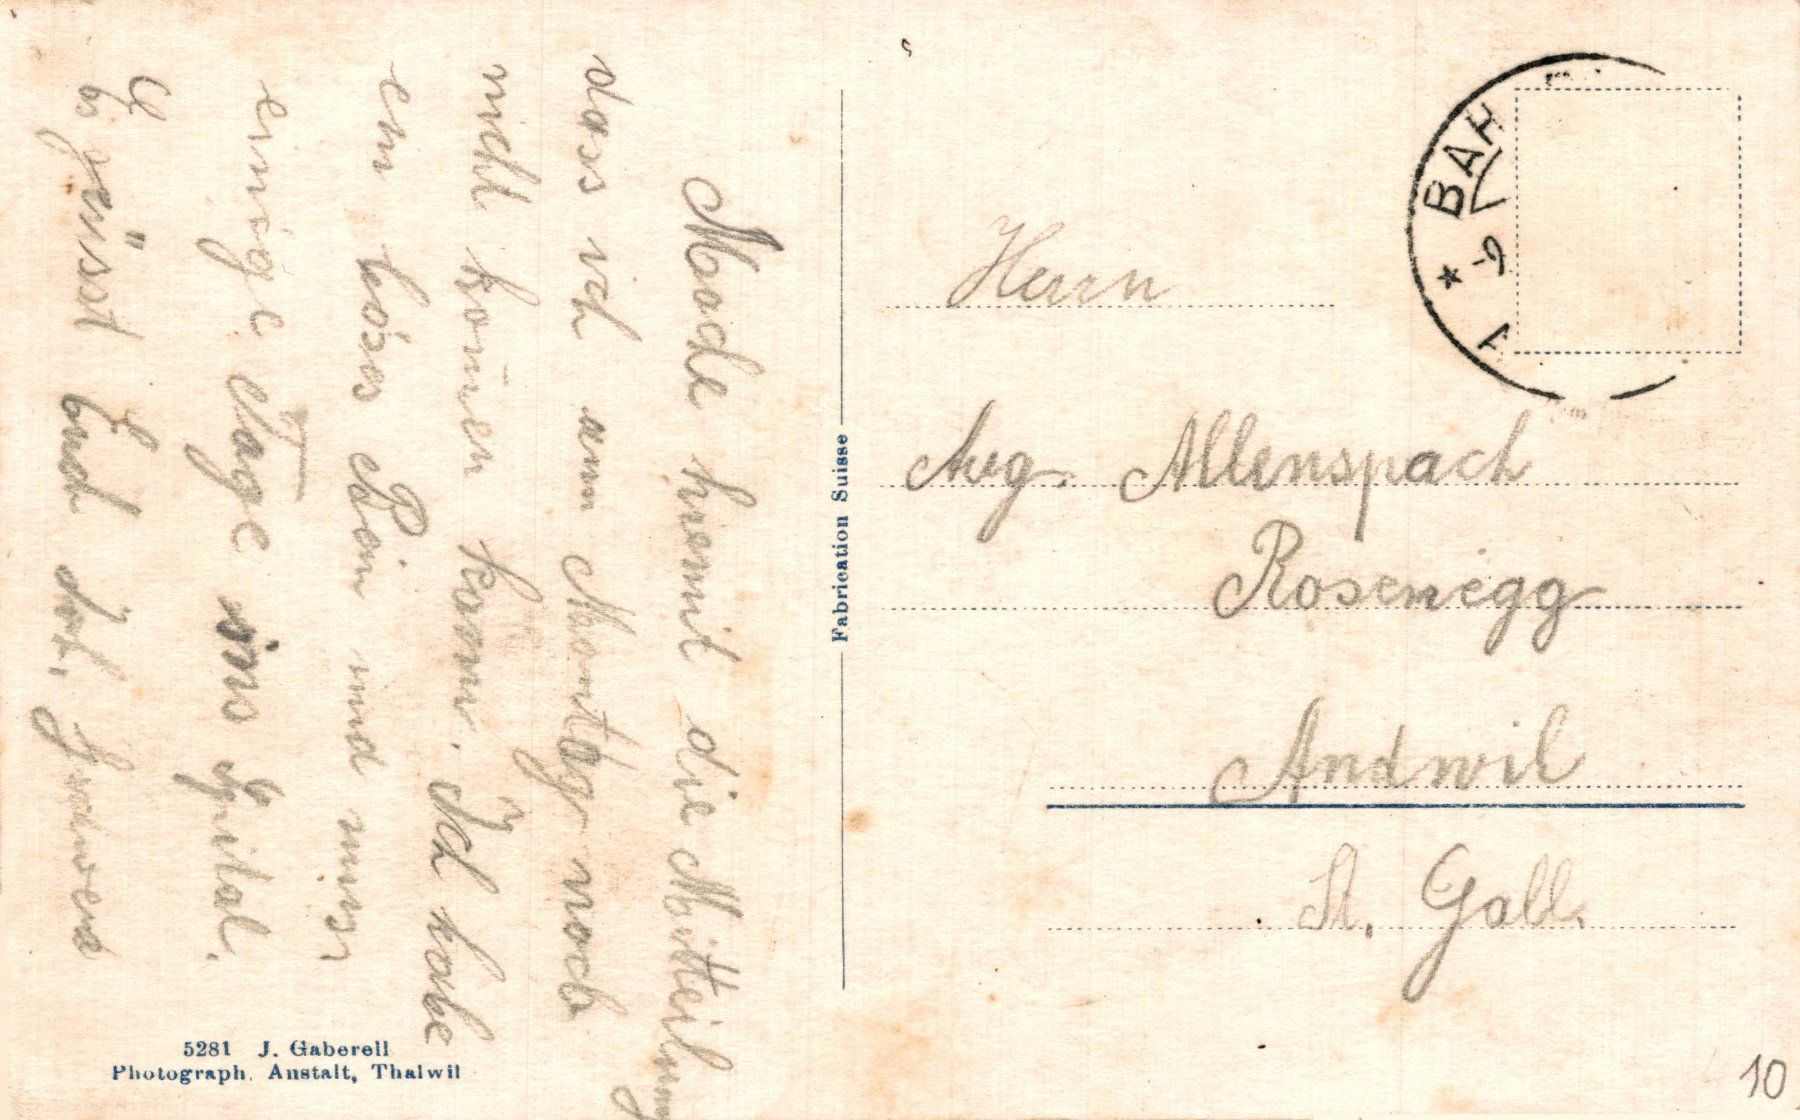 Mache hiemit die Mitteilung
dass ich am Montag noch
nicht kommen kann. Ich habe
ein böses Bein und muss
einige Tage ins Spital.
Es grüsst Euch
5281 J. Gaberell
Photograph. Anstalt, Thalwil
Fabrication Suisse
BAH
-9
Herrn
Aug. Allenspach
Rosenegg
Andwil
St. Gall.
10